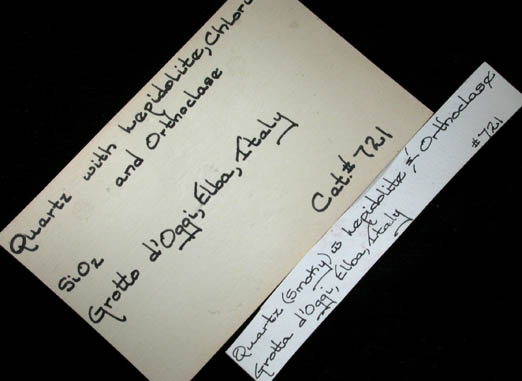 Quartz with Lepidolite, Chlori
and Orthoclase
SiO2
Grotto d'Oggi, Elba, Italy
Cat# 721
Quartz (Smoky) w Lepidolite & Orthoclase
Grotta d'Oggi, Elba, Italy
#721